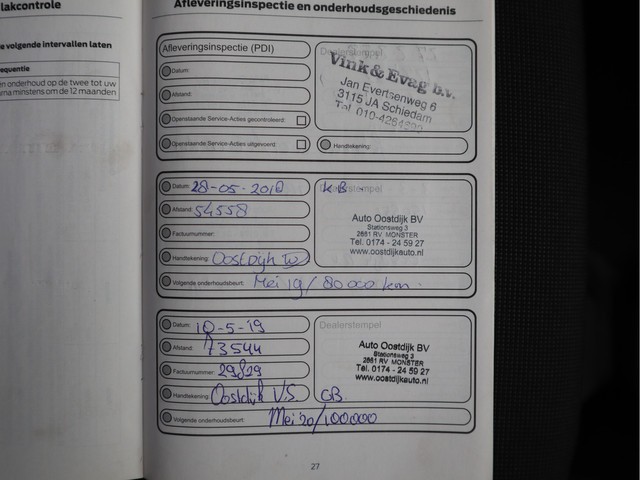 lakcontrole
e volgende intervallen laten
equentie
en onderhoud op de twee tot uw
rna minstens om de 12 maanden
Afleveringsinspectie en onderhoudsgeschiedenis
Afleveringsinspectie (PDI)
Datum:
Afstand:
Openstaande Service-Acties gecontroleerd:
Openstaande Service-Acties uitgevoerd:
Dealerstempel
Vink & Evag B.V.
Jan Evertsenweg 6
3115 JA Schiedam
Tel. 010-4264
Handtekening:
Datum: 28-05-2018
Afstand: 54558
Factuurnummer:
Handtekening: Oostdijk
Volgende onderhoudsbeurt: Mei 19/80000 km.
Dealerstempel
KB
Auto Oostdijk BV
Stationsweg 3
2681 RV MONSTER
Tel. 0174 - 24 59 27
www.oostdijkauto.nl
Datum: 10-5-19
Afstand: 73544
Factuurnummer: 29829
Handtekening: Oostdijk V.S.
Volgende onderhoudsbeurt: Mei 20/100000
Dealerstempel
Auto Oostdijk BV
Stationsweg 3
2681 RV MONSTER
Tel. 0174 - 24 59 27
www.oostdijkauto.nl
GB
27